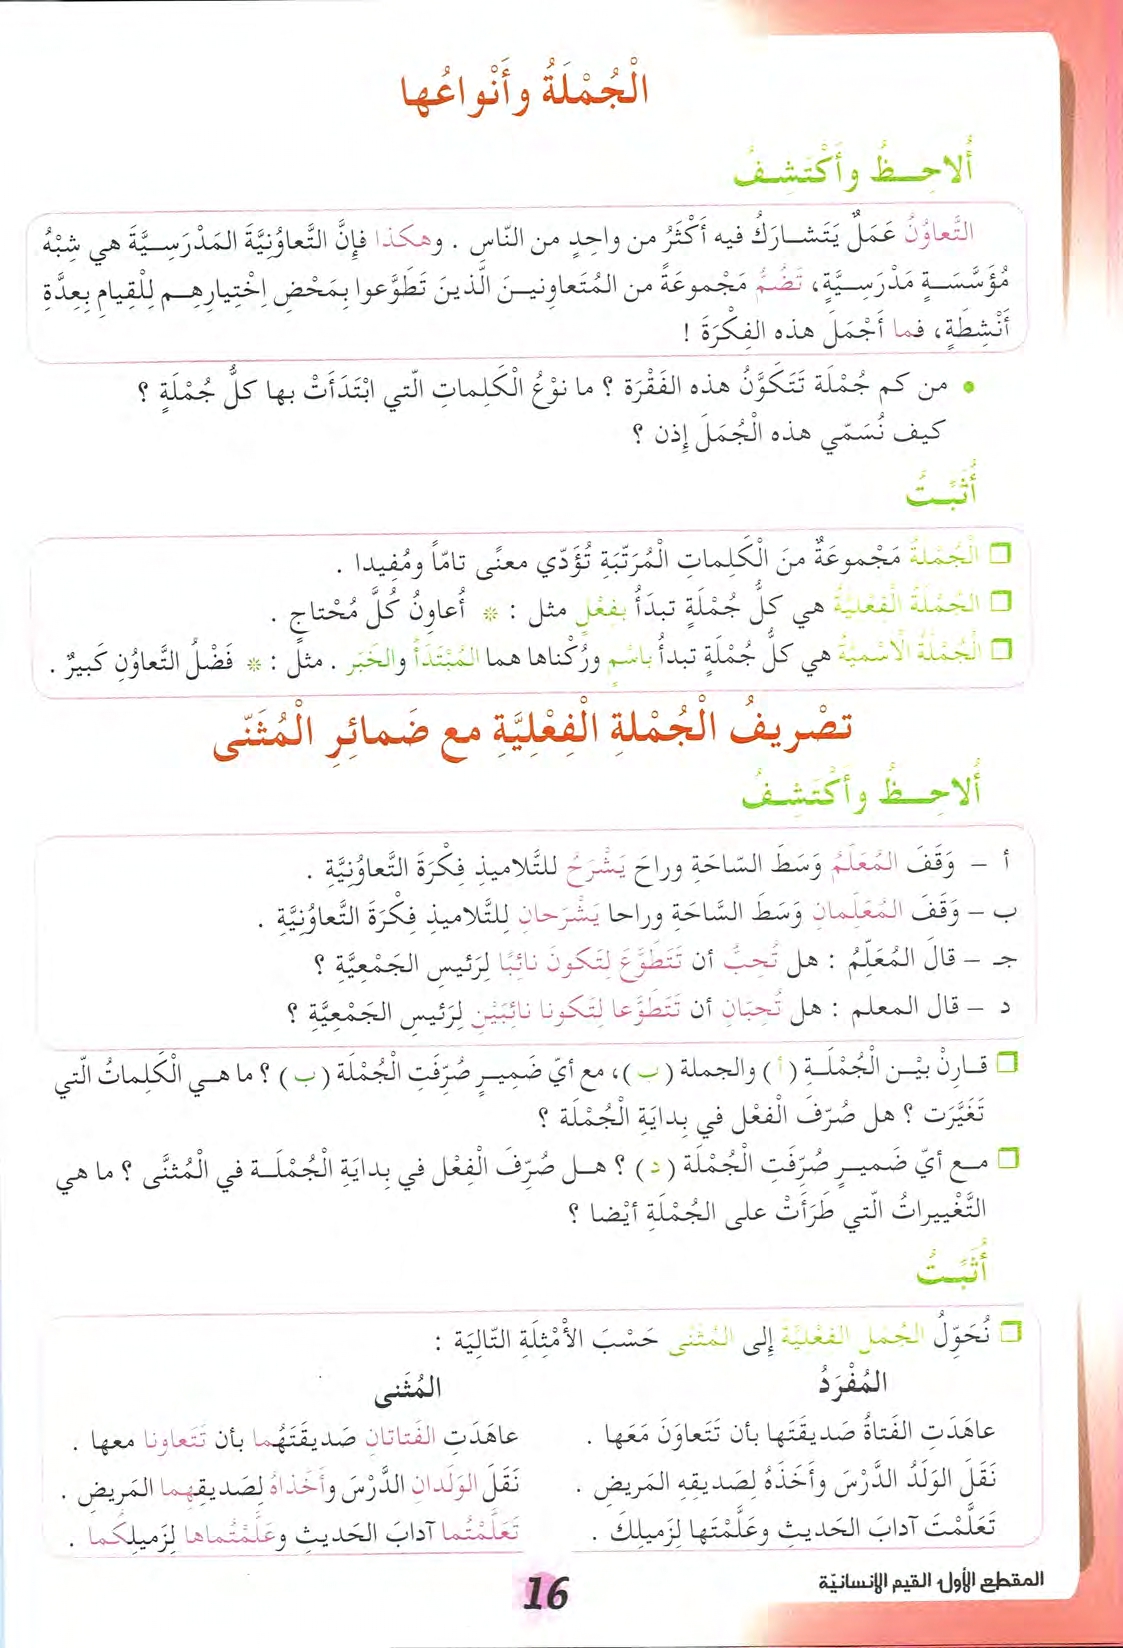 الْجُمْلَةُ وأَنْواعُها
أُلاحِـظُ وأَكْتَشِـفُ
التَّعاوُنُ عَمَلٌ يَتَشـارَكُ فيه أَكْثَرُ من واحِدٍ من النّاسِ . وهكذا فإنَّ التَّعاوُنِيَّةَ المَدْرَسِـيَّةَ هي شِبْهُ
مُؤَسَّسَـةٍ مَدْرَسِـيَّةٍ، تَضُمُّ مَجْموعَةً من المُتَعاونيـنَ الّذينَ تَطَوَّعوا بِمَحْضِ اِخْتِيارِهِـم لِلْقِيامِ بِعِدَّةِ
أَنْشِطَةٍ، فما أَجْمَلَ هذه الفِكْرَةَ !
• من كم جُمْلَة تَتَكَوَّنُ هذه الفَقْرَة ؟ ما نوْعُ الْكَلِماتِ الّتي ابْتَدَأَتْ بها كلُّ جُمْلَةٍ ؟
كيف نُسَمّي هذه الْجُمَلَ إذن ؟
أُثْبِـتُ
❒ الْجُمْلةُ مَجْموعَةٌ منَ الْكَلِماتِ الْمُرَتّبَةِ تُؤَدّي معنًى تامّاً ومُفيدا .
❒ الجُمْلَةُ الْفِعْلِيَّةُ هي كلُّ جُمْلَةٍ تبدَأُ بفِعْلٍ مثل : * أُعاوِنُ كُلَّ مُحْتاجٍ .
❒ الْجُمْلَةُ الْاسْمِيَّةُ هي كلُّ جُمْلَةٍ تبدأُ باسْمٍ ورُكْناها هما المُبْتَدَأُ والخَبَر . مثلَ : * فَضْلُ التَّعاوُنِ كَبيرٌ .
تصْريفُ الْجُمْلةِ الْفِعْلِيَّةِ مع ضَمائِرِ الْمُثَنّى
أُلاحِـظُ وأَكْتَشِـفُ
أ – وَقَفَ المُعَلّمُ وَسَطَ السّاحَةِ وراحَ يَشْرَحُ للتَّلاميذِ فِكْرَةَ التَّعاوُنِيَّةِ .
ب – وَقَفَ المُعَلّمانِ وَسَطَ السَّاحَةِ وراحا يَشْرَحانِ لِلتَّلاميذِ فِكْرَةَ التَّعاوُنِيَّةِ .
جـ – قالَ المُعَلّمُ : هل تُحِبُّ أن تَتَطَوَّعَ لِتَكونَ نائِبًا لِرَئيسِ الجَمْعِيَّةِ ؟
د – قال المعلم : هل تُحِبّانِ أن تَتَطَوَّعا لِتَكونا نائِبَيْنِ لِرَئيسِ الجَمْعِيَّةِ ؟
❒ قـارِنْ بيْـن الْجُمْلَـةِ (أ) والجملة (ب)، مع أيّ ضَميـرٍ صُرّفَتِ الْجُمْلَة (ب) ؟ ما هـي الْكَلِماتُ الّتي
تَغَيَّرَت ؟ هل صُرّفَ الْفعْل في بِدايَةِ الْجُمْلَة ؟
❒ مـع أيّ ضَميـرٍ صُرّفَتِ الْجُمْلَة (د) ؟ هـل صُرّفَ الْفِعْل في بِدايَةِ الْجُمْلَـة في الْمُثنَّى ؟ ما هي
التَّغْييراتُ الّتي طَرَأَتْ على الجُمْلَةِ أيْضا ؟
أُثْبِـتُ
❒ نُحَوّلُ الجُمَل الفِعْلِيَّةَ إلى المُثَنّى حَسْبَ الأمْثِلَةِ التّالِيَة :
المُفْرَدُ المُثَنى
عاهَدَتِ الفَتاةُ صَديقَتَها بأن تَتَعاوَنَ مَعَها . عاهَدَتِ الفَتاتانِ صَديقَتَهُما بأن تَتَعاونا معها .
نَقَلَ الوَلَدُ الدَّرْسَ وأَخَذَهُ لِصَديقِهِ المَريض . نَقَلَ الوَلَدانِ الدَّرْسَ وأَخَذاهُ لِصَديقِهِما المَريض .
تَعَلَّمْتَ آدابَ الحَديثِ وعَلَّمْتَها لِزَميلِكَ . تَعَلَّمْتُما آدابَ الحَديثِ وعَلَّمْتُماها لِزَميلِكُما .
المقطع الأول القيم الإنسانيّة
16